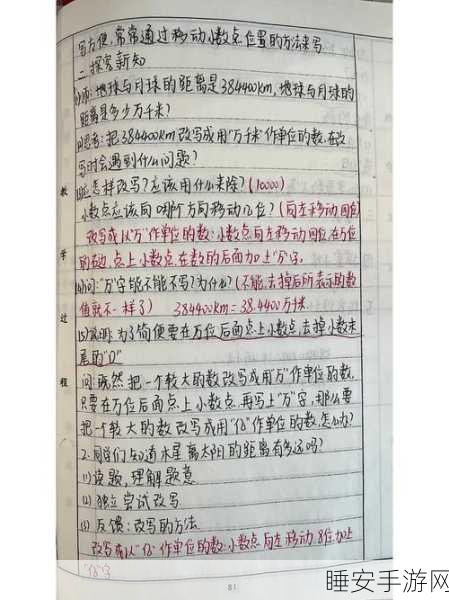 写方便,常常通过移动小数点位置的方法来写
二.探究新知
问:地球与月球的距离是384400km,地球与月球的
距离是多少万千米?
思考:把384400km改写成用"万千米"作单位的数,在改
写时会遇到什么问题?
怎样改写?应该用什么来除?(10000)
小数点应该向哪个方向移动几位?(向左移动四位)
改写成以"万"作单位的数:小数点向左移动四位,在万位
的右边,点上小数点,在数的后面加上"万"字.
(4)问:"万"字能不能不写?为什么?(不能,去掉后所表示的数
值就不一样了) 384400km=38.4400万千米
(5)说明:为了简便要在万位后面点上小数点,去掉小数末
尾的"0"
问:既然把一个较大的数改写成用"万"作单位的数,
只要在万位后面点上小数点,再写上"万"字,那么要
把一个较大的数改写成用"亿"作单位的数,怎么办?
2.同学们知道木星离太阳的距离有多远吗?
(1)读题,理解题意
(2)独立尝试改写
(3)反馈:改写的方法
改写成以"亿"作单位的数:小数点向左移动8位,加上
"亿"字
教
学
过
程
81
睡安手游网